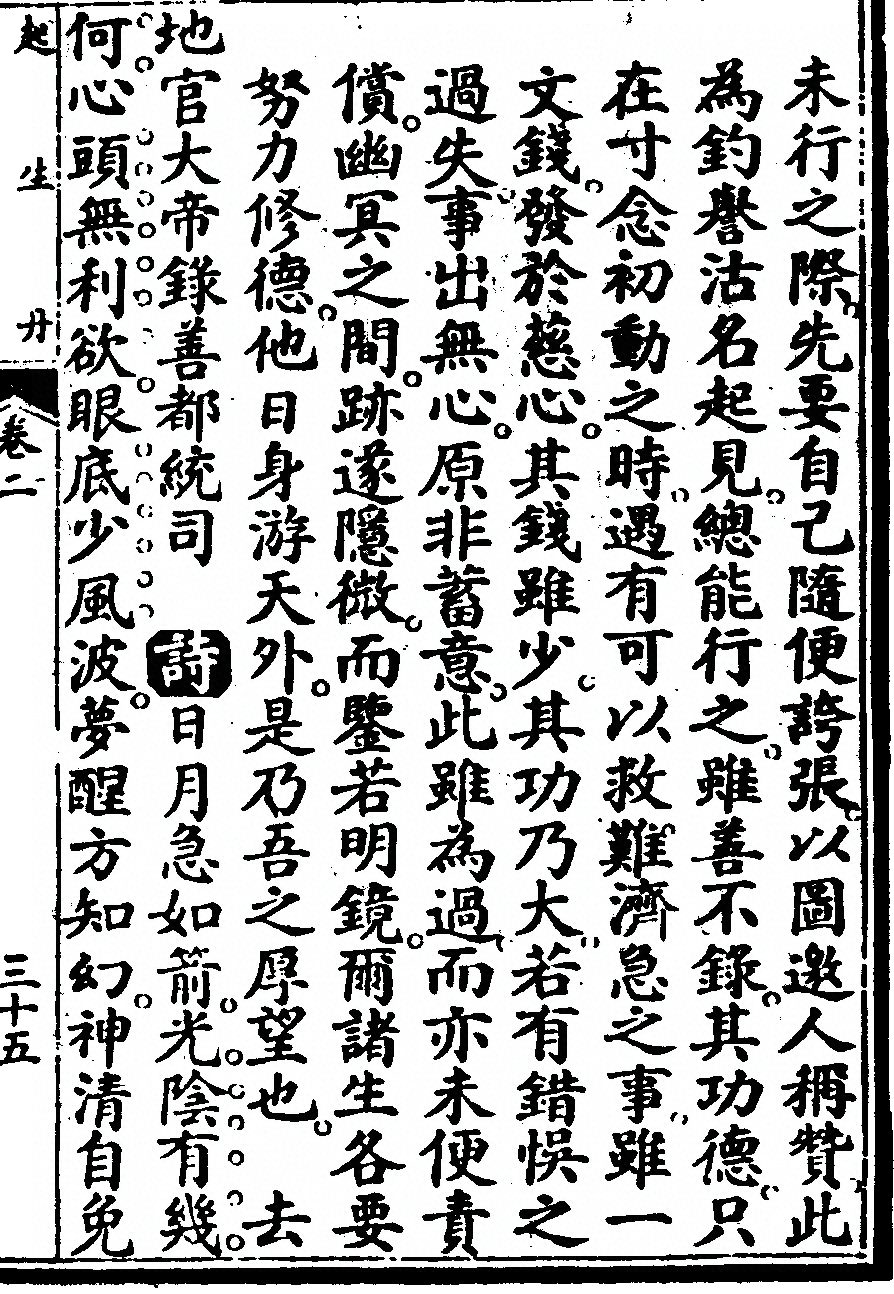 未行之際先要自己隨便誇張以圖邀人稱贊此
為釣譽沽名起見總能行之雖善不錄其功德只
在寸念初動之時遇有可以救難濟急之事雖一
文錢發於慈心其錢雖少其功乃大若有錯悞之
過失事出無心原非蓄意此雖為過而亦未便責
償幽冥之間跡遂隱微而鑒若明鏡爾諸生各要
努力修德他日身游天外是乃吾之厚望也 去
地官大帝錄善都統司 詩日月急如箭光陰有幾
何心頭無利欲眼底少風波夢醒方知幻神清自免
起生丹 卷二 三十五